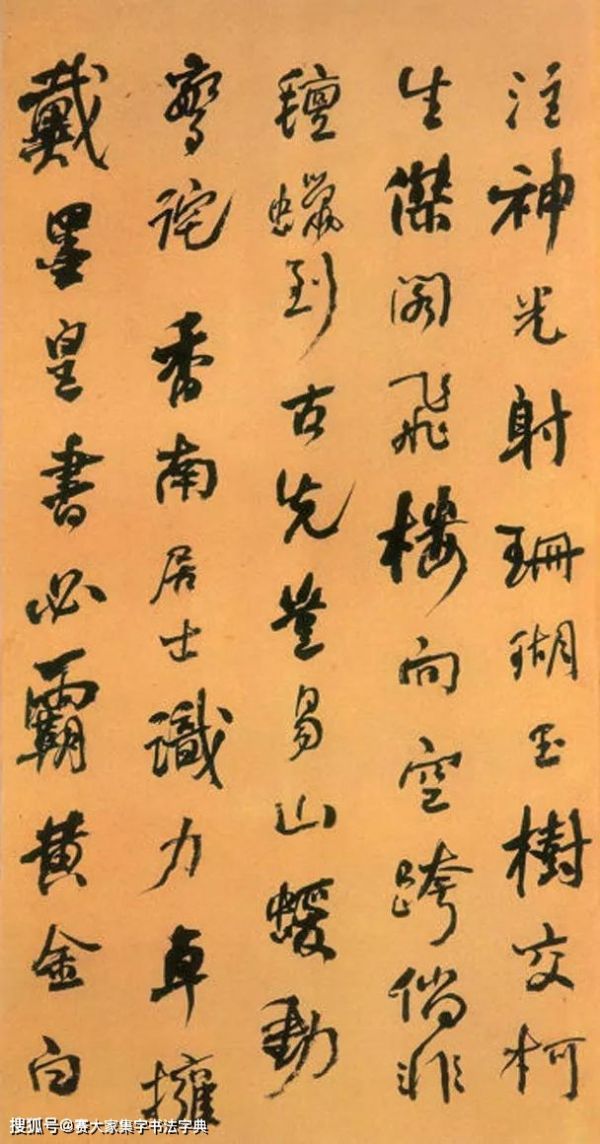 注神光射珊瑚玉樹交柯
生傑閣飛樓向空跨倘非
氈蠟到古先豈易山蝯動
驚詫香南居士識力卓擁
戴墨皇書必霸黃金白
搜狐号@赛大家集字书法字典